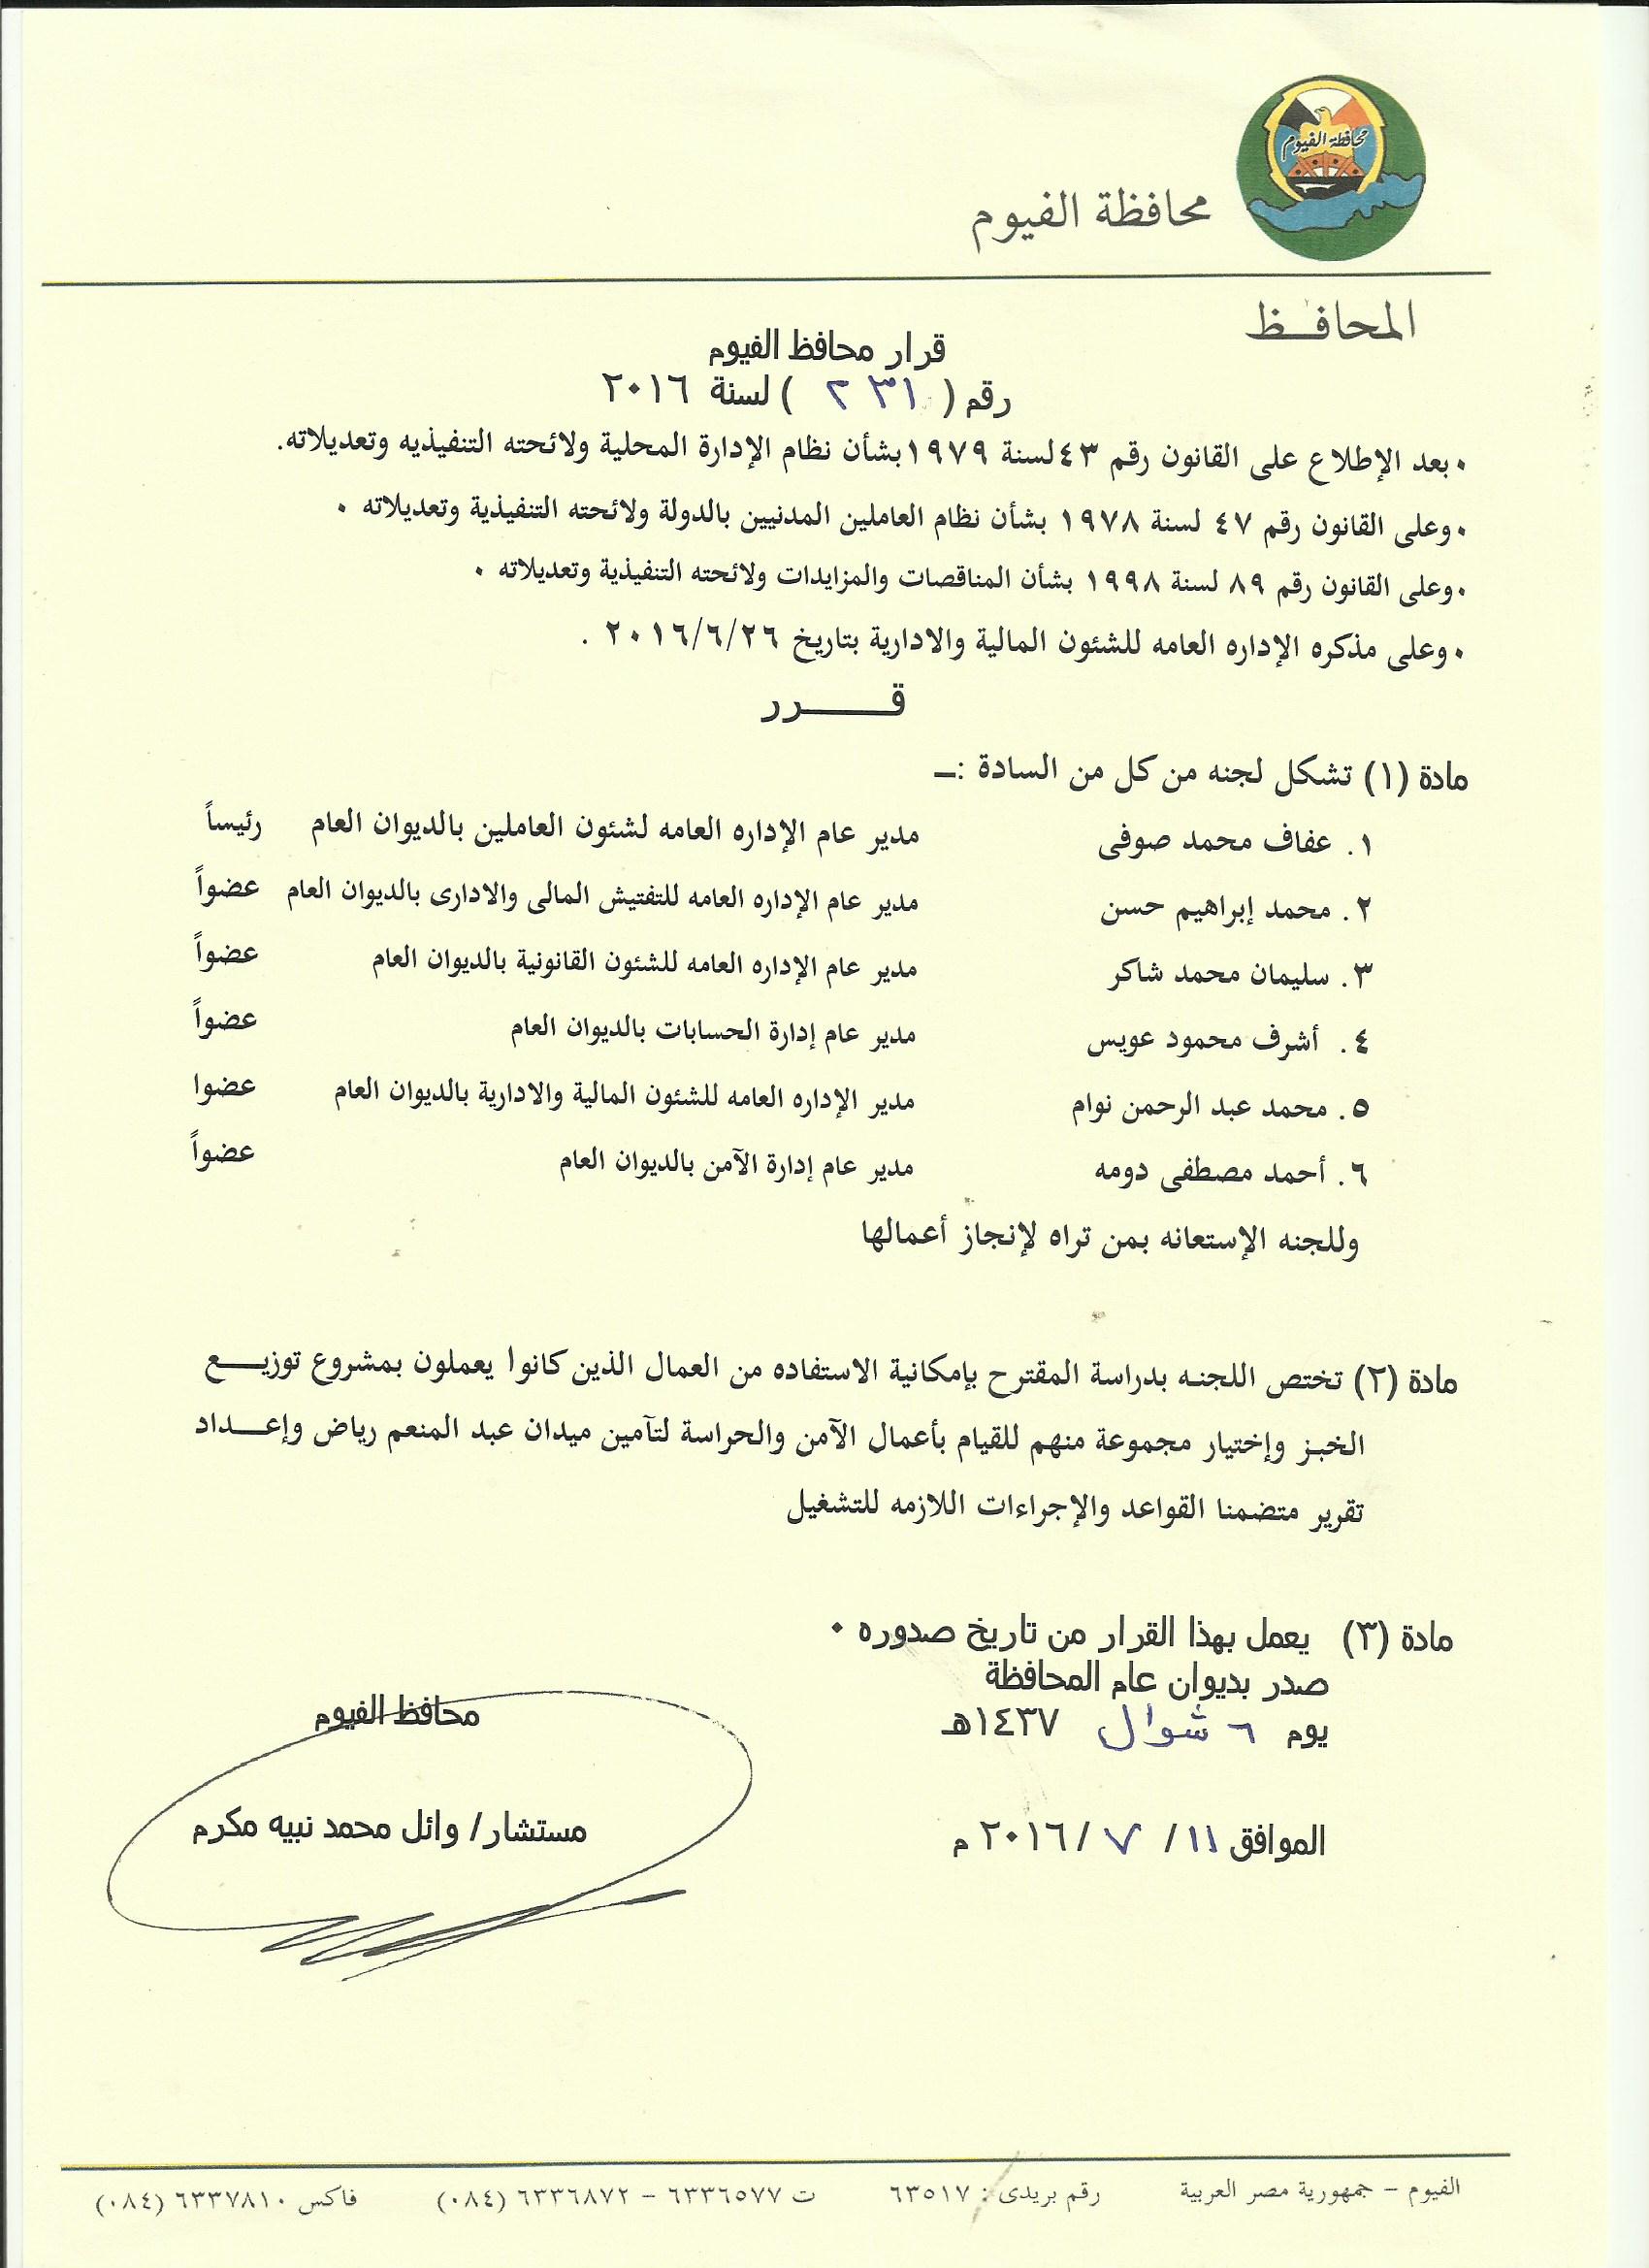 محافظة الفيوم
محافظة الفيوم
المحافـــظ
قرار محافظ الفيوم
رقم ( ٢٣١ ) لسنة ٢٠١٦
• بعد الإطلاع على القانون رقم ٤٣ لسنة ١٩٧٩ بشأن نظام الإدارة المحلية ولائحته التنفيذيه وتعديلاته.
• وعلى القانون رقم ٤٧ لسنة ١٩٧٨ بشأن نظام العاملين المدنيين بالدولة ولائحته التنفيذية وتعديلاته •
• وعلى القانون رقم ٨٩ لسنة ١٩٩٨ بشأن المناقصات والمزايدات ولائحته التنفيذية وتعديلاته •
• وعلى مذكره الإداره العامه للشئون المالية والادارية بتاريخ ٢٠١٦/٦/٢٦ .
قـــــــرر
مادة (١) تشكل لجنه من كل من السادة :ــ
١. عفاف محمد صوفى مدير عام الإداره العامه لشئون العاملين بالديوان العام رئيساً
٢. محمد إبراهيم حسن مدير عام الإداره العامه للتفتيش المالى والادارى بالديوان العام عضواً
٣. سليمان محمد شاكر مدير عام الإداره العامه للشئون القانونية بالديوان العام عضواً
٤. أشرف محمود عويس مدير عام إدارة الحسابات بالديوان العام عضواً
٥. محمد عبد الرحمن نوام مدير الإداره العامه للشئون المالية والادارية بالديوان العام عضوا
٦. أحمد مصطفى دومه مدير عام إدارة الآمن بالديوان العام عضواً
وللجنه الإستعانه بمن تراه لإنجاز أعمالها
مادة (٢) تختص اللجنه بدراسة المقترح بإمكانية الاستفاده من العمال الذين كانوا يعملون بمشروع توزيـــــع
الخبـز وإختيار مجموعة منهم للقيام بأعمال الآمن والحراسة لتآمين ميدان عبد المنعم رياض وإعــــداد
تقرير متضمنا القواعد والإجراءات اللازمه للتشغيل
مادة (٣) يعمل بهذا القرار من تاريخ صدوره •
صدر بديوان عام المحافظة
يوم ٦ شوال ١٤٣٧هـ
الموافق ١١ / ٧ / ٢٠١٦ م
محافظ الفيوم
مستشار/ وائل محمد نبيه مكرم
الفيوم – جمهورية مصر العربية رقم بريدى : ٦٣٥١٧ ت ٦٣٣٦٥٧٧ – ٦٣٣٦٨٧٢ (٠٨٤) فاكس ٦٣٣٧٨١٠ (٠٨٤)